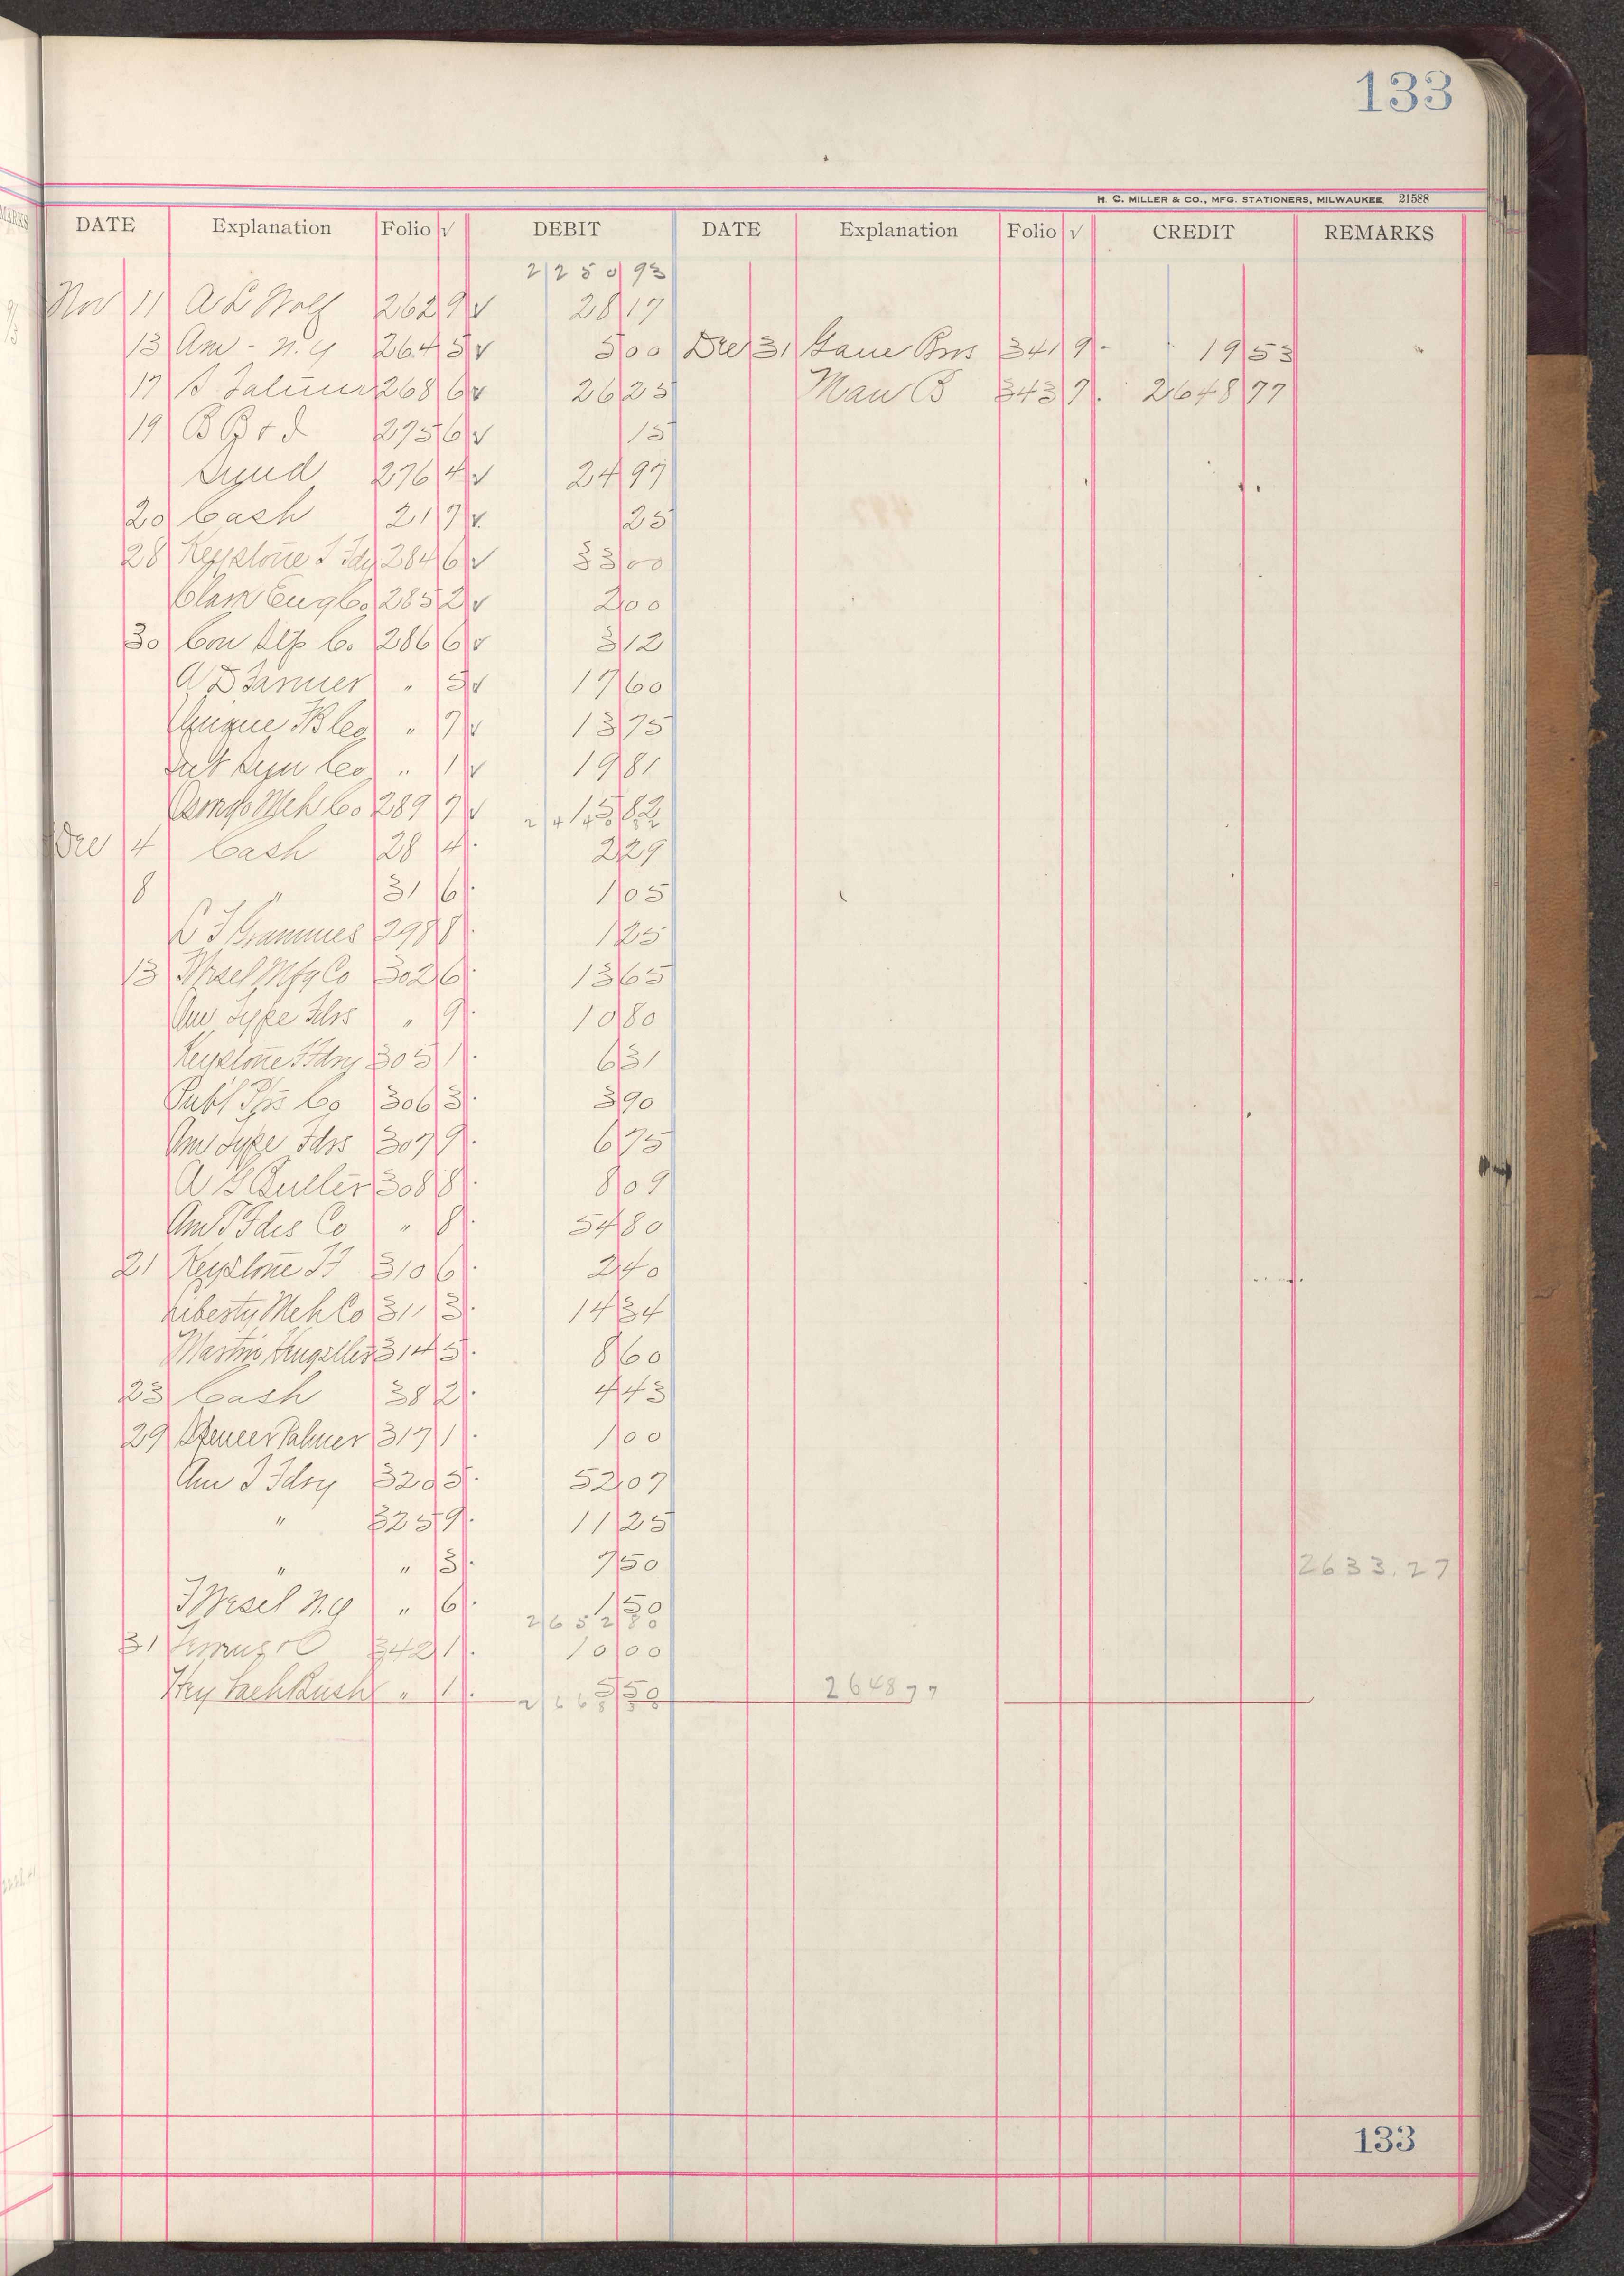 133
H. C. MILLER & CO., MFG. STATIONERS, MILWAUKEE 21588
DATE Explanation Folio √ DEBIT DATE Explanation Folio √ CREDIT REMARKS
2250 93
Nov 11 A L Wolf 262 9 √ 28 17
13 Am - N.Y 264 5 √ 5 00 Dec 31 Gane Bros 341 9 19 53
17 S 268 6 √ 26 25 Man B 343 7 2648 77
19 B B & S 275 6 √ 15
Synd 276 4 √ 24 97
20 Cash 21 7 √ 25
28 Keystone T Fdy 284 6 √ 33 00
Clark Eng Co 285 2 √ 2 00
30 Con Slp Co 286 6 √ 3 12
A D Farmer " 5 √ 17 60
Unique Co " 7 √ 13 75
Int Co " 1 √ 19 81
Mch Co 289 7 √ 15 82
Dec 4 Cash 28 4 2 29
8 " 31 6 1 05
L F Grammes 298 8 1 25
13 Wesel Mfg Co 302 6 13 65
Am Type Fdrs " 9 10 80
Keystone T Fdry 305 1 6 31
Publ Co 306 3 3 90
Am Type Fdrs 307 9 6 75
A G 308 8 8 09
Am T Fdrs Co " 8 54 80
21 Keystone T F 310 6 2 40
Liberty Mch Co 311 3 14 34
Martin 314 5 8 60
23 Cash 38 2 4 43
29 Spencer Palmer 317 1 1 00
Am T Fdry 320 5 52 07
" 325 9 11 25
" " 3 7 50 2633.27
F Wesel N.Y " 6 1 50
2652 80
31 342 1 10 00
Hy " 1 5 50 2648 77
2668 30
133